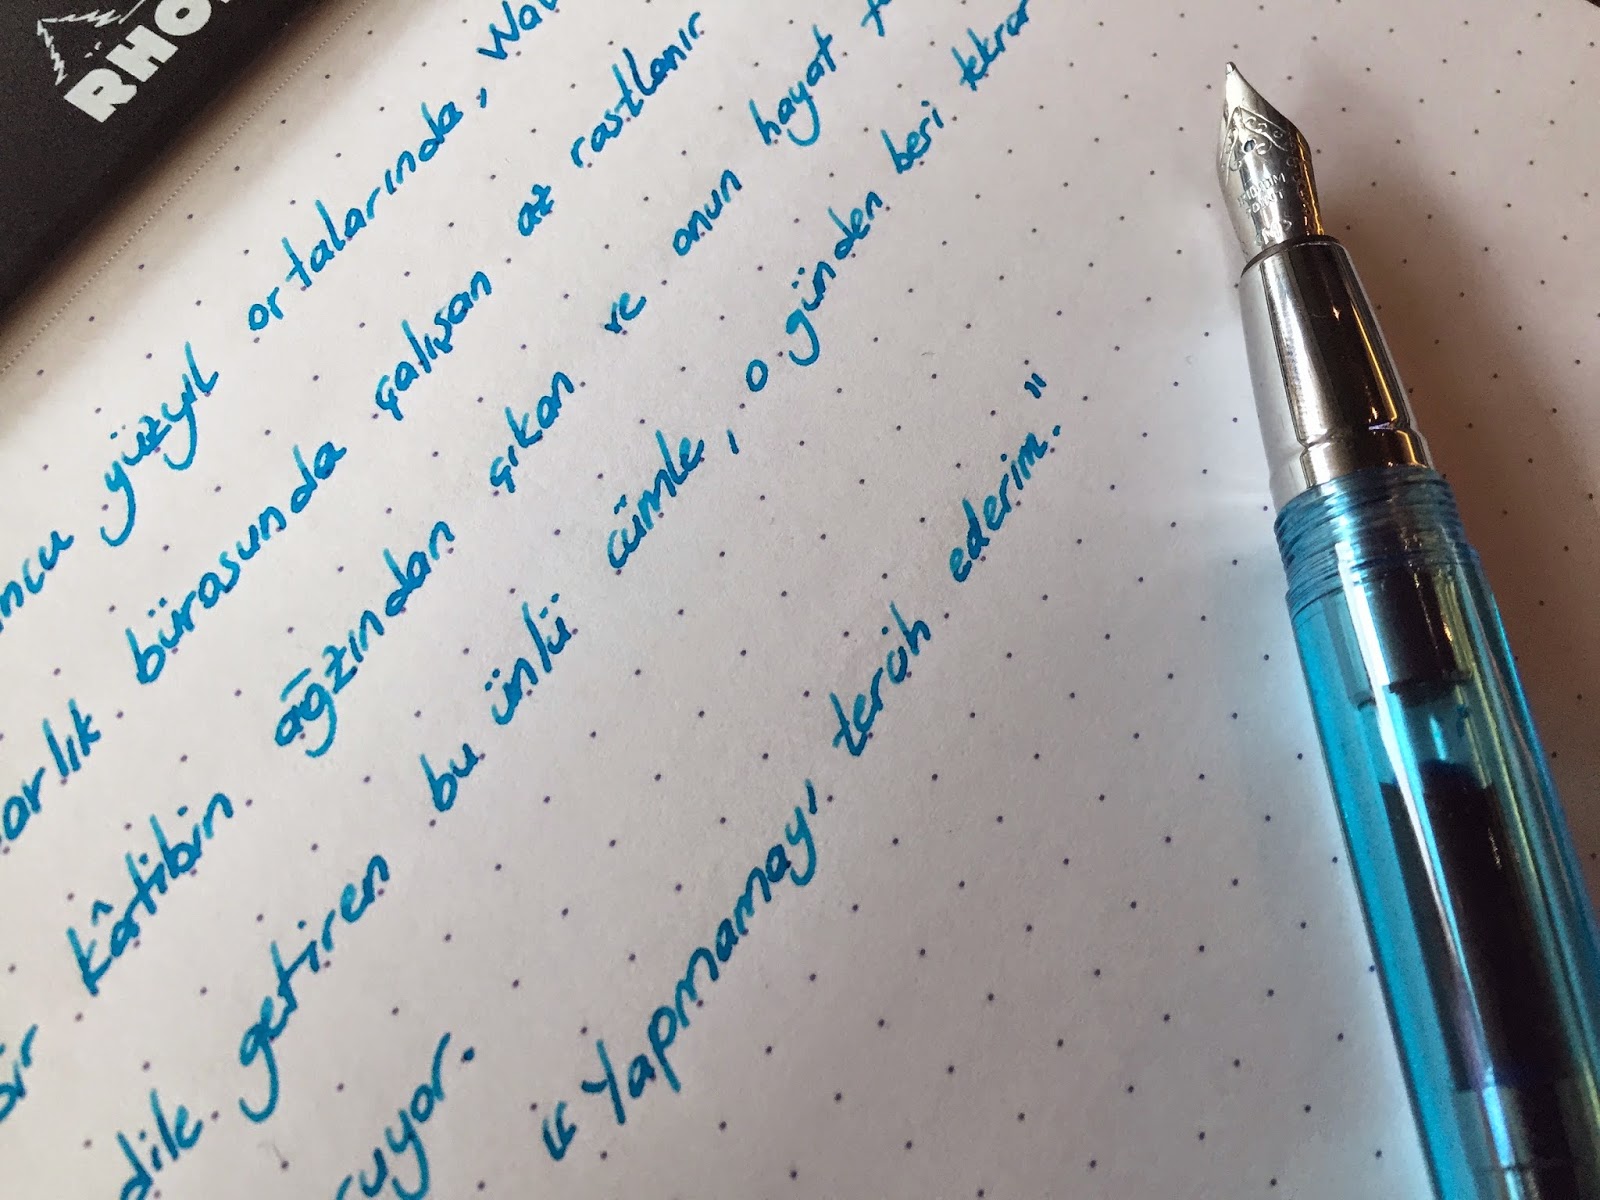 RHO
ncu yüzyıl ortalarında, Wal
arlık bürosunda çalışan az rastlanır
bir kâtibin ağzından çıkan ve onun hayat
dile getiren bu ünlü cümle, o günden beri tekrar
uyor. "Yapmamayı tercih ederim."